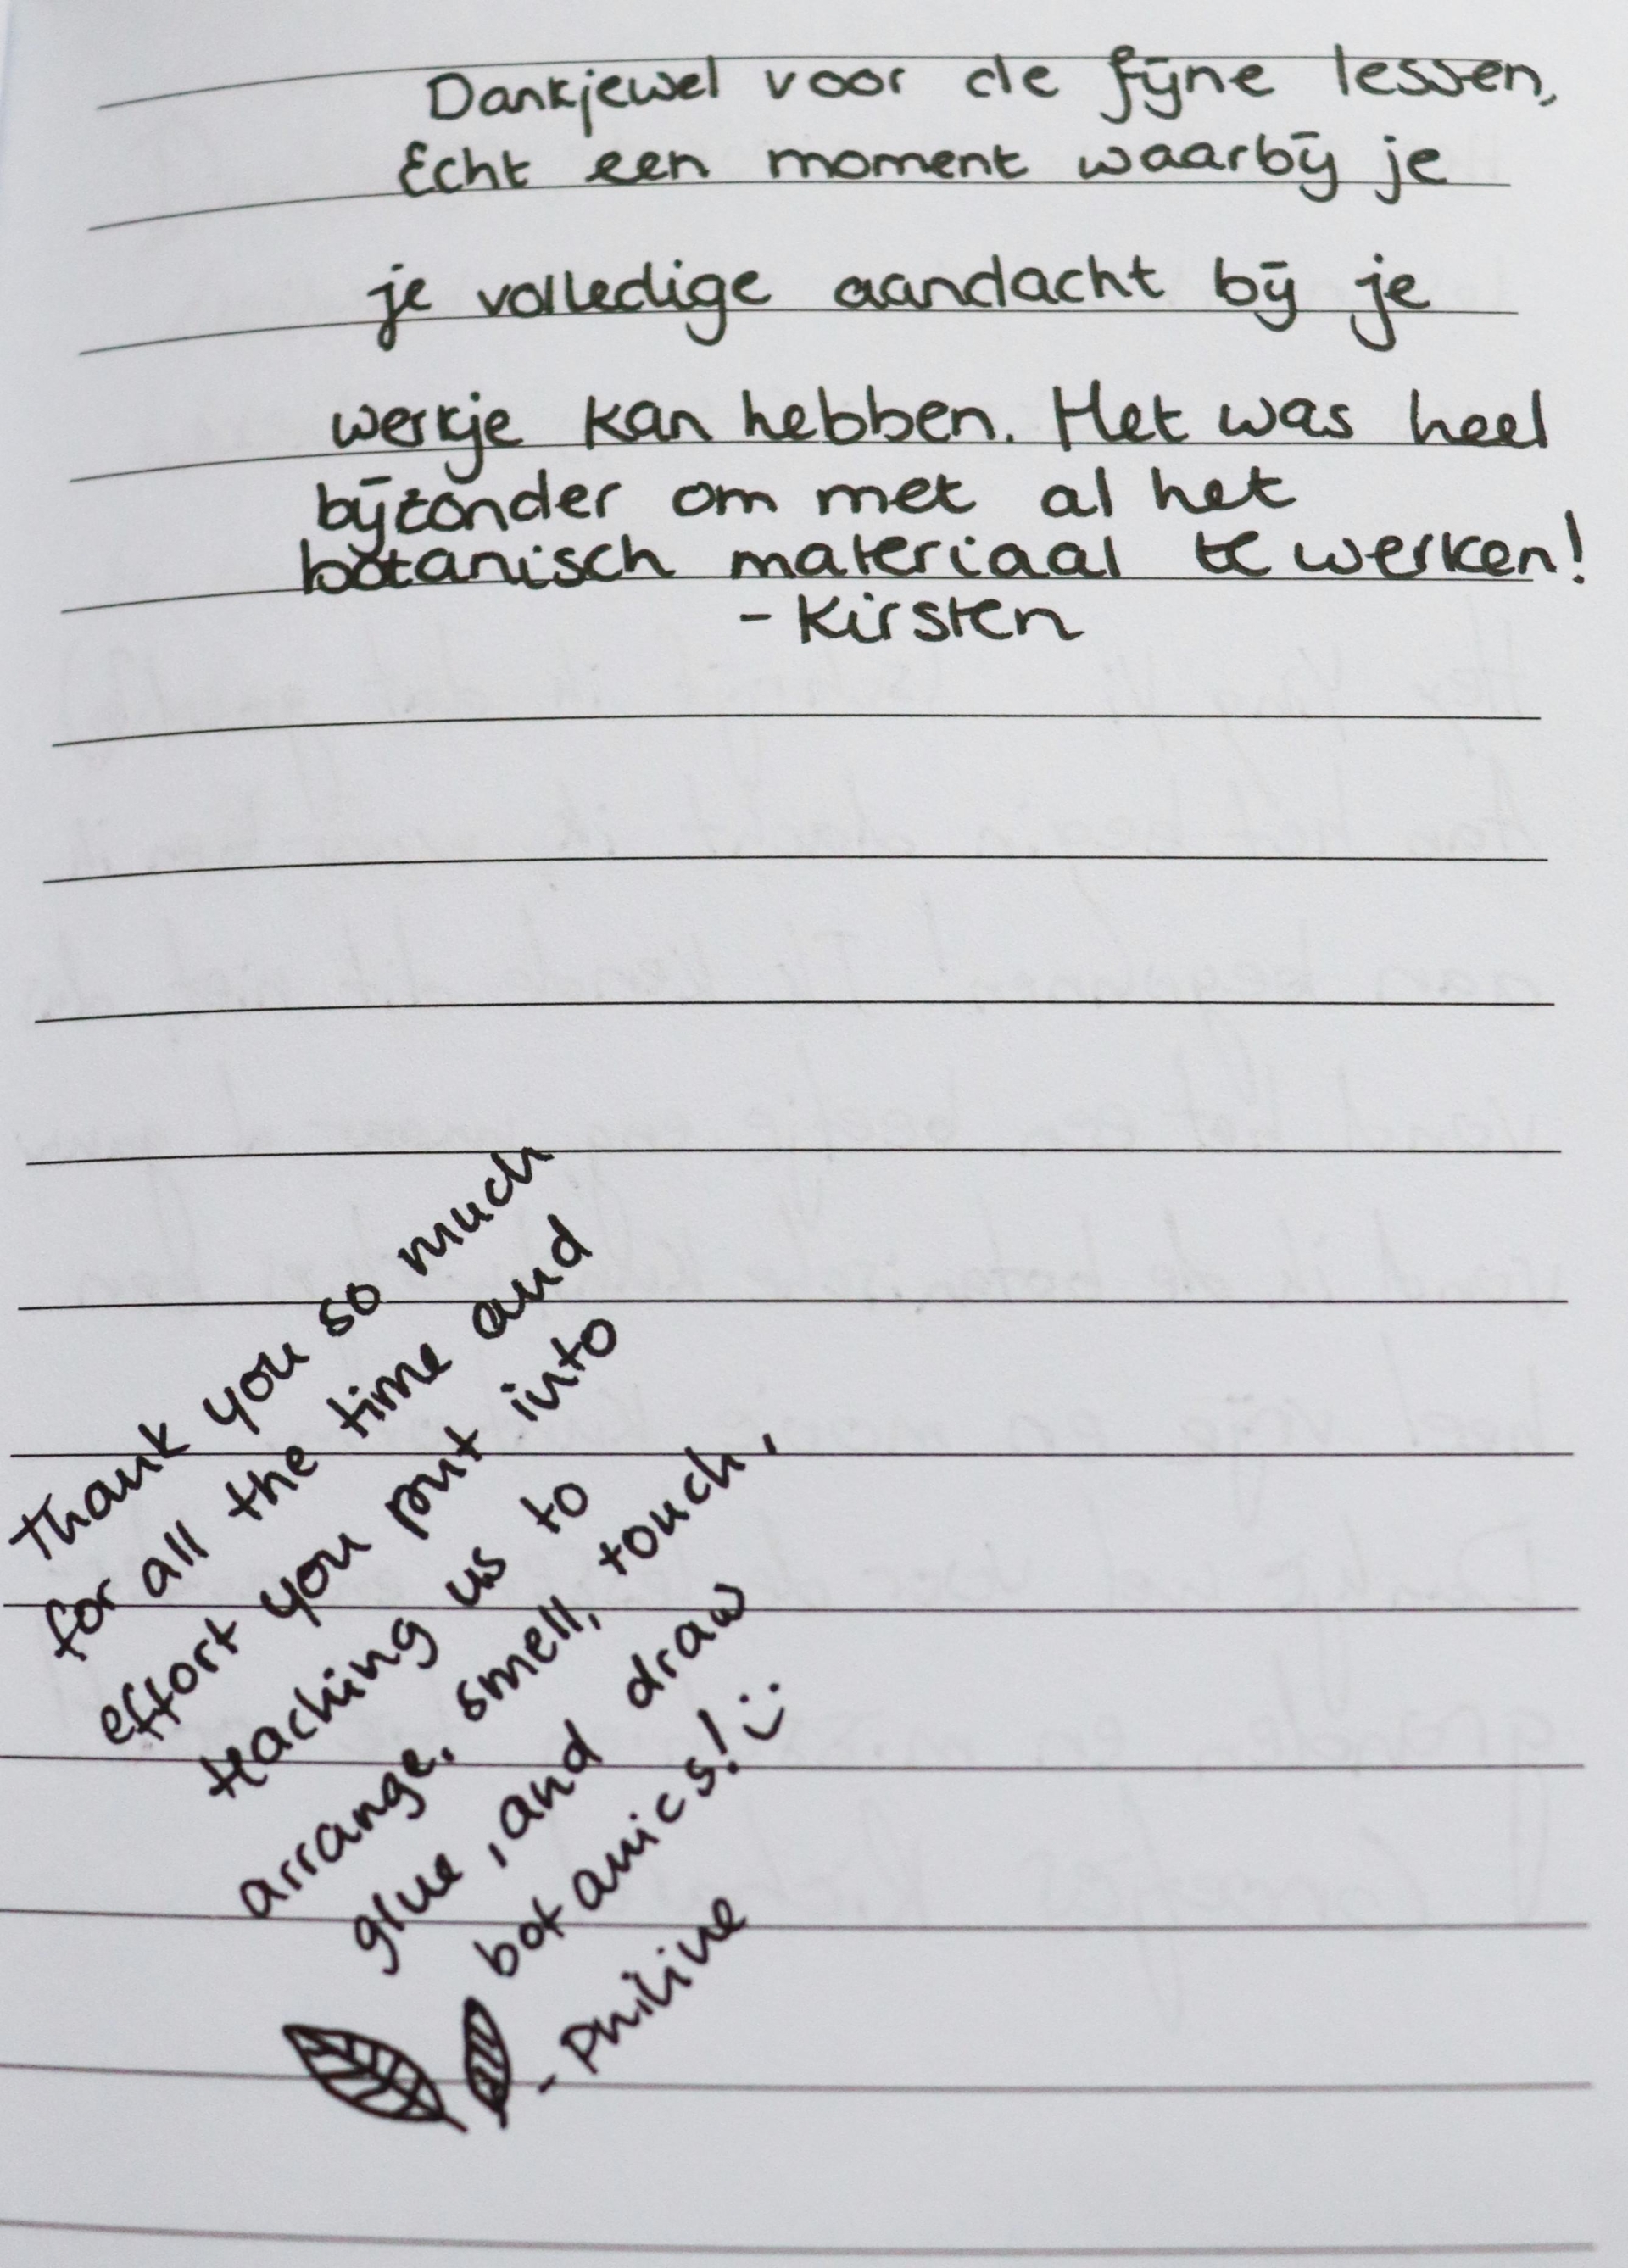 Dankjewel voor de fijne lessen,
Echt een moment waarbij je
je volledige aandacht bij je
werkje kan hebben. Het was heel
bijzonder om met al het
botanisch materiaal te werken!
- Kirsten
Thank you so much
for all the time and
effort you put into
teaching us to
arrange, smell, touch,
glue, and draw
botanics! :)
- Philine